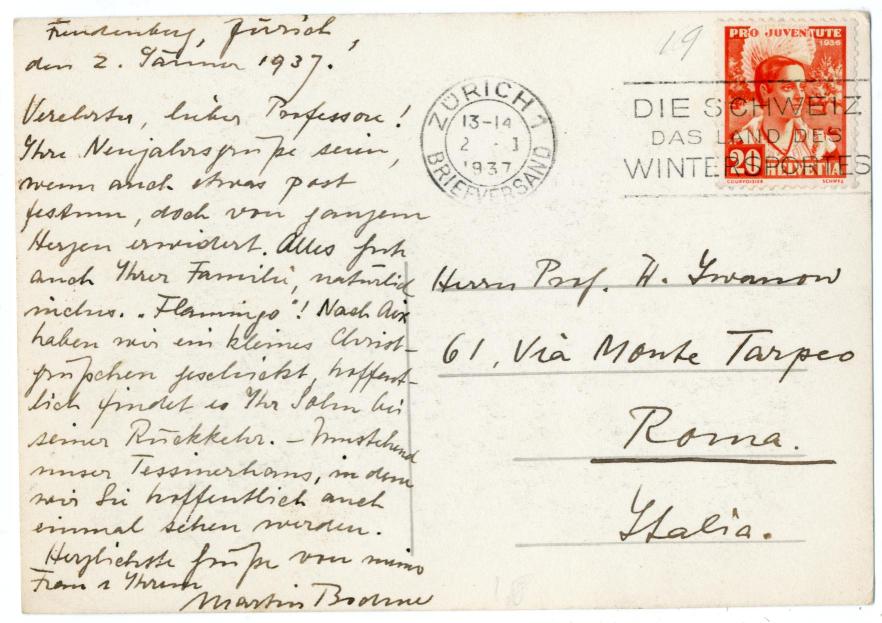 Freudenberg, Zürich,
den 2. Jänner 1937.
Verehrter, lieber Professore!
Ihre Neujahrsgrüße seien,
wenn auch etwas post
festum, doch von ganzem
Herzen erwidert. Alles gute
auch Ihrer Familie, natürlich
inclus. „Flamingo"! Nach Aix
haben wir ein kleines Christ-
grüßchen geschickt, hoffent-
lich findet es Ihr Sohn bei
seiner Rückkehr. – Umstehend
unser Tessinerhaus, in dem
wir Sie hoffentlich auch
einmal sehen werden.
Herzlichste Grüße von meiner
Frau u Ihrem
Martin Bodmer
19
PRO JUVENTUTE
1936
20 HELVETIA
COURVOISIER SCHWEIZ
ZÜRICH 1
13-14
2. I
1937
BRIEFVERSAND
DIE SCHWEIZ
DAS LAND DES
WINTERSPORTES
Herrn Prof. W. Iwanow
61, Via Monte Tarpeo
Roma.
Italia.